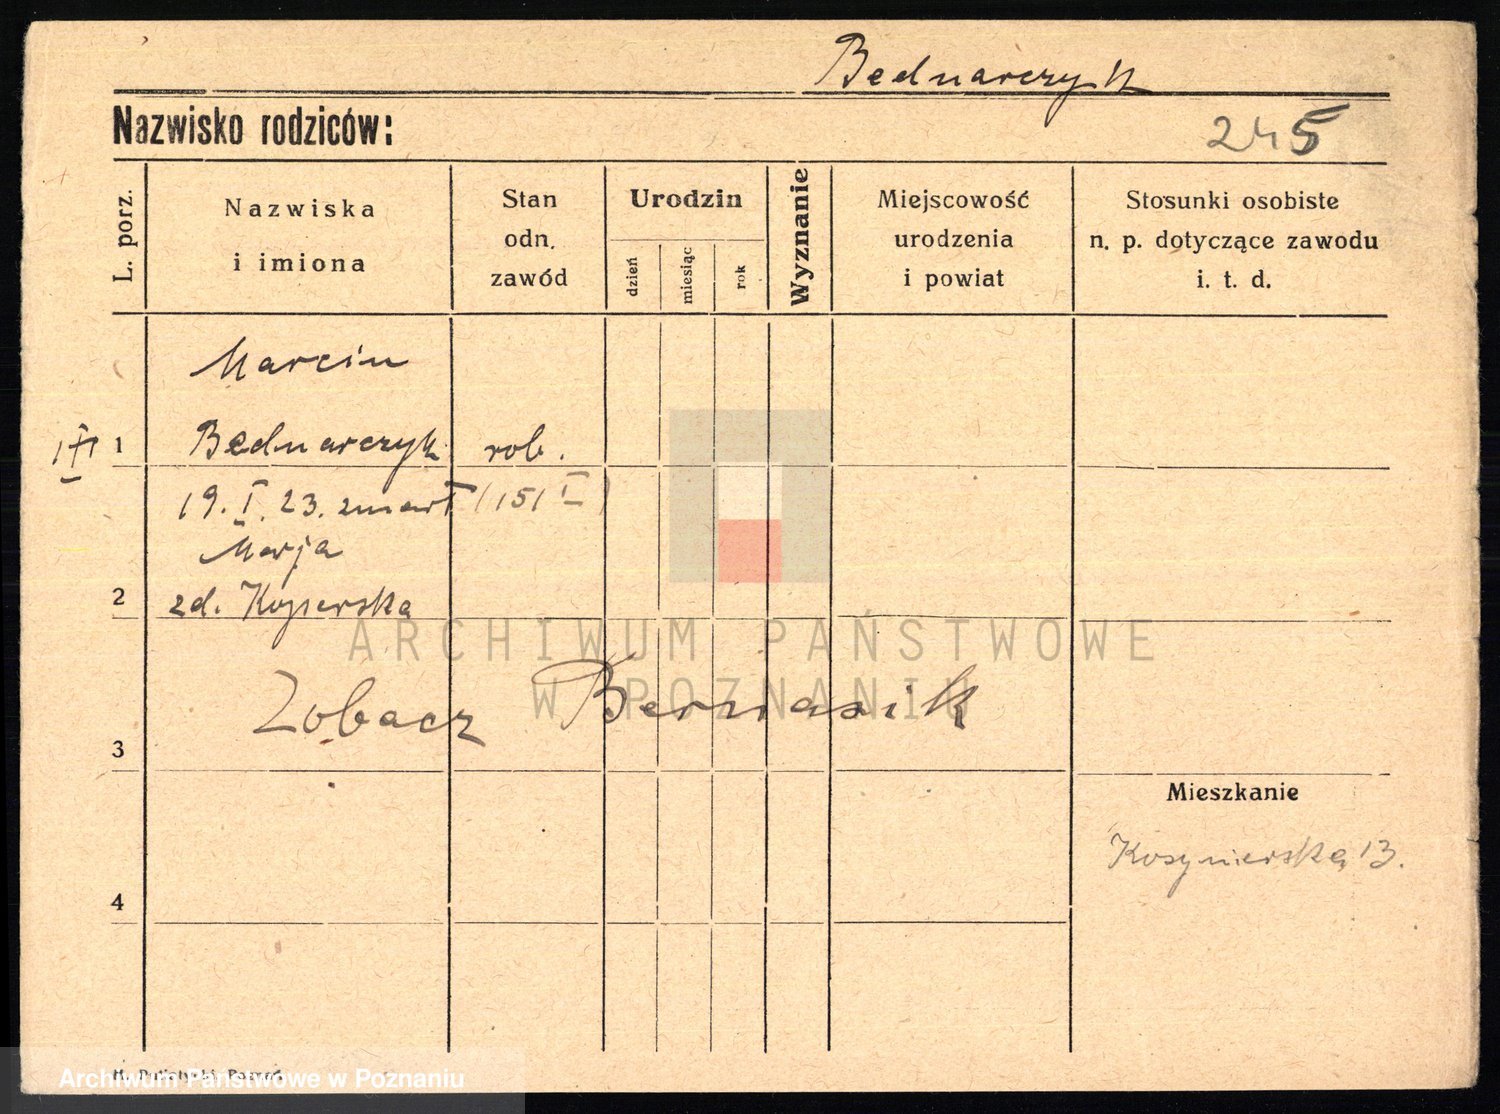 Bednarczyk
Nazwisko rodziców:
245
L. porz.
Nazwiska
i imiona
Stan
odn.
zawód
Urodzin
dzień
miesiąc
rok
Wyznanie
Miejscowość
urodzenia
i powiat
Stosunki osobiste
n. p. dotyczące zawodu
i. t. d.
Marcin
1 Bednarczyk rob.
19. I. 23. zmarł (151 I)
Marja
2 zd.
Zobacz Bernasik
3
Mieszkanie
13.
4
ARCHIWUM PAŃSTWOWE
W POZNANIU
Archiwum Państwowe w Poznaniu